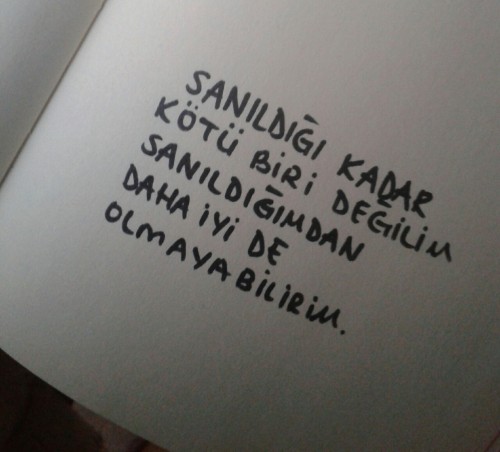 SANILDIĞI KADAR
KÖTÜ BİRİ DEĞİLİM
SANILDIĞIMDAN
DAHA İYİ DE
OLMAYABİLİRİM.